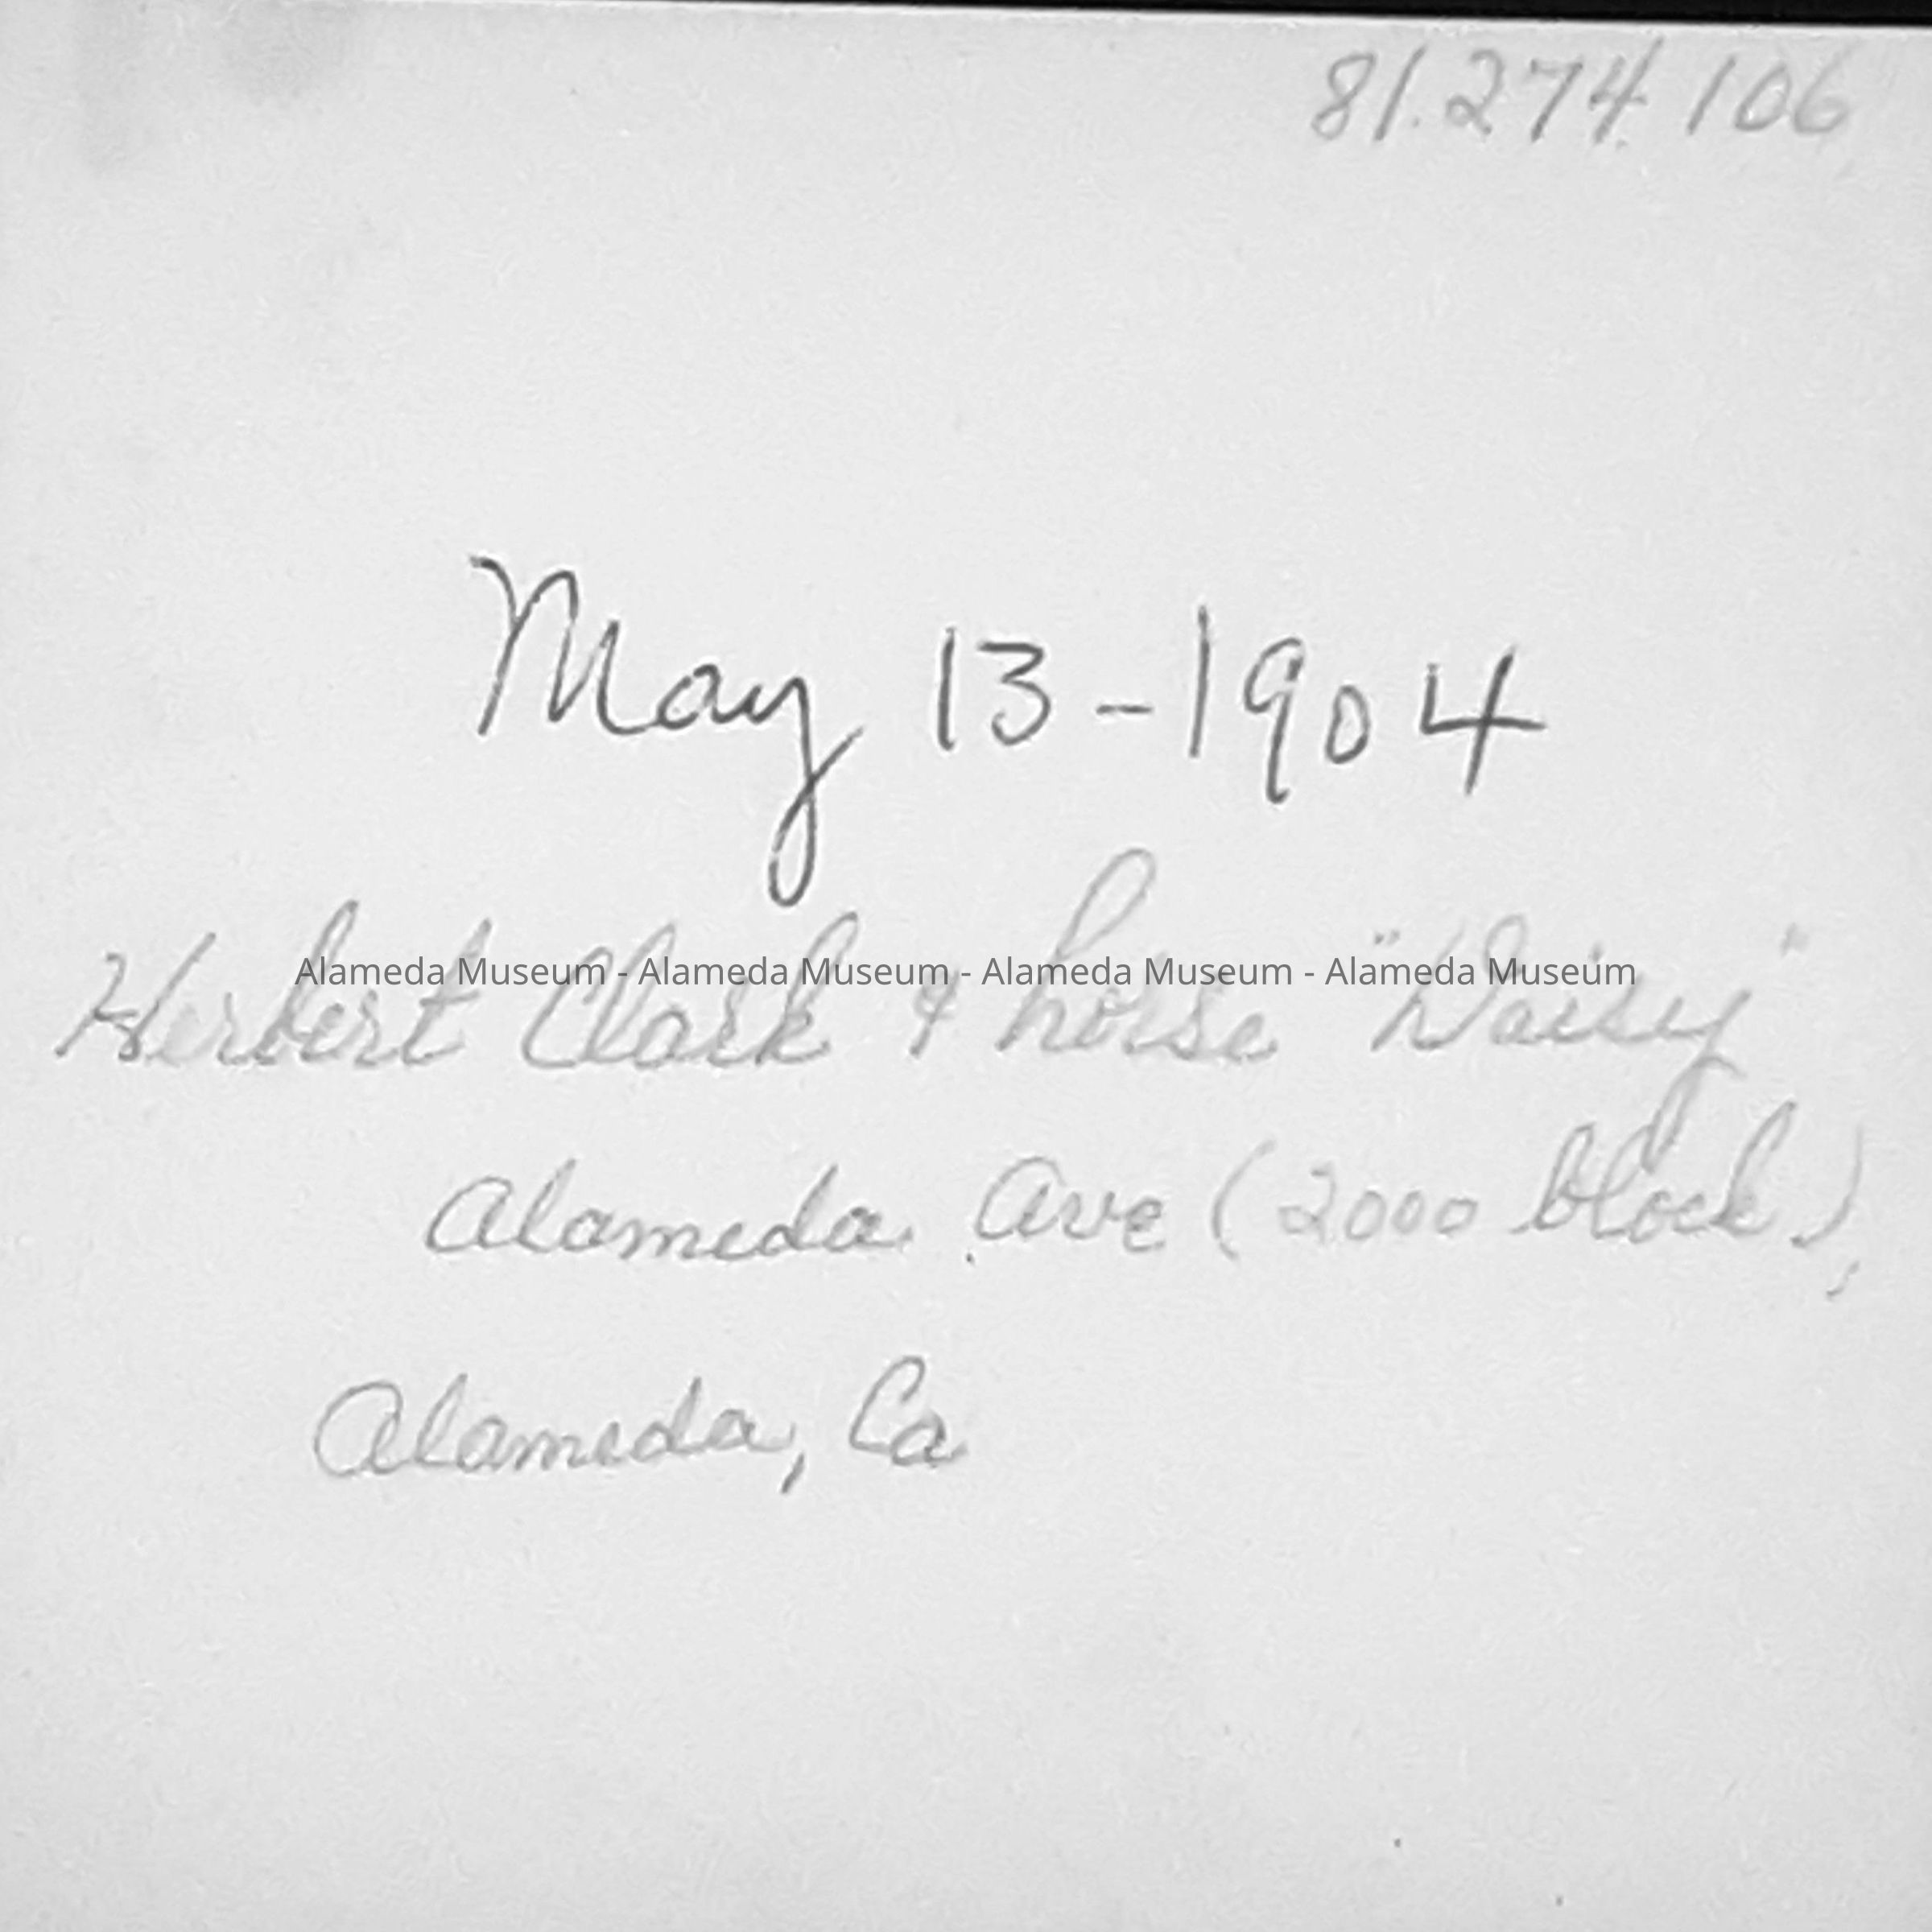 81.274.106
May 13-1904
Herbert Clark & horse "Daisy"
Alameda Museum - Alameda Museum - Alameda Museum - Alameda Museum
Alameda Ave (2000 block),
Alameda, Ca